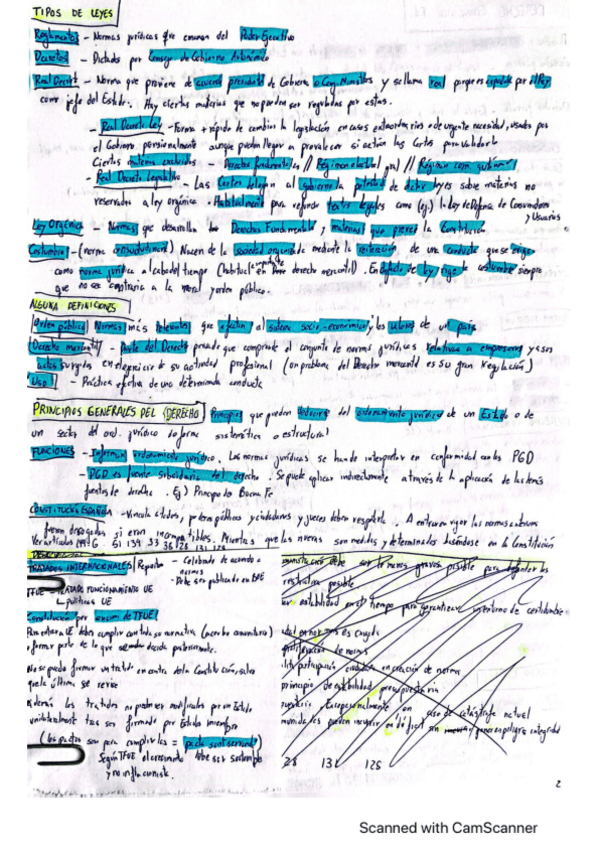 TIPOS DE LEYES
Reglamentos - Normas jurídicas que emanan del Poder Ejecutivo
Decretos - Dictados por Consejo de Gobierno Autonómico
Real Decreto - Norma que proviene de acuerdo presidente de Gobierno o Cons. Ministros y se llama real porque es expedido por el Rey
como jefe del Estado. Hay ciertas materias que no pueden ser reguladas por estos.
- Real Decreto Ley - Forma + rápida de cambiar la legislación en casos extraordinarios o de urgente necesidad, usados por
el Gobierno aunque pueden llegar a prevalecer si actúan las Cortes para validar
Ciertas materias excluidas - Derechos fundamentales // Régimen electoral gral //
- Real Decreto Legislativo - Las Cortes delegan al gobierno la potestad de dictar leyes sobre materias no
reservadas a ley orgánica. Habitualmente para refundir textos legales como (ej.) la Ley de Defensa de Consumidores
y Usuarios
Ley Orgánica - Normas que desarrolla los Derechos Fundamentales y materias que prevee la Constitución
Costumbre - (norma consuetudinaria) Nacen de la sociedad organizada mediante la reiteración de una conducta que se erige
como norma jurídica al cabo del tiempo (habitual en derecho mercantil). En defecto de ley rige la costumbre siempre
que no sea contraria a la moral y orden público.
ALGUNA DEFINICIONES
Orden público Normas más relevantes que afectan al sistema socio-económico y los valores de un país
Derecho mercantil - Parte del Derecho privado que comprende el conjunto de normas jurídicas relativas a empresarios y a sus
actos surgidos en el ejercicio de su actividad profesional (un problema del Derecho mercantil es su gran regulación)
Uso - Práctica efectiva de una determinada conducta
PRINCIPIOS GENERALES DEL DERECHO Principios que pueden deducirse del ordenamiento jurídico de un Estado o de
un sector del ord. jurídico de forma sistemática o estructural
FUNCIONES - Informan ordenamiento jurídico. Las normas jurídicas se han de interpretar en conformidad con los PGD
- PGD es fuente subsidiaria del derecho. Se puede aplicar indirectamente a través de la aplicación de las demás
fuentes de derecho. Ej) Principio de Buena Fe
CONSTITUCIÓN ESPAÑOLA - Vincula a todos, poderes públicos y ciudadanos y jueces deben respetarla. A entrar en vigor las normas anteriores
fueron derogadas si eran incompatibles. Mientras que las nuevas son medidas y determinadas basándose en la Constitución
Ver artículos 51 139 33 38 128 131 128
TRATADOS INTERNACIONALES / Requisitos - Celebrado de acuerdo a
normas
- Debe ser publicado en BOE
TFUE - TRATADO FUNCIONAMIENTO UE
políticas UE
Constitución por encima de TFUE!
Para entrar a UE deben cumplir con toda su normativa (acervo comunitario)
y formar parte de lo que se decida posteriormente.
No se puede formar un tratado en contra de la Constitución, salvo
que la última se revise
Además los tratados no pueden ser modificados por un Estado
unilateralmente tras ser formado por Estado miembro
(los pactos son para cumplirlos = pacta sunt servanda)
Según TFUE el consumidor debe ser
administración debe ser lo menos gravosa posible para
restrictiva posible
estabilidad en el tiempo para garantizar entorno de certidumbre
participación ciudadana en creación de norma
principio de estabilidad presupuestaria
Excepcionalmente en caso de catástrofe natural
pueden incurrir en déficit sin integridad
28 131 128
2
Scanned with CamScanner